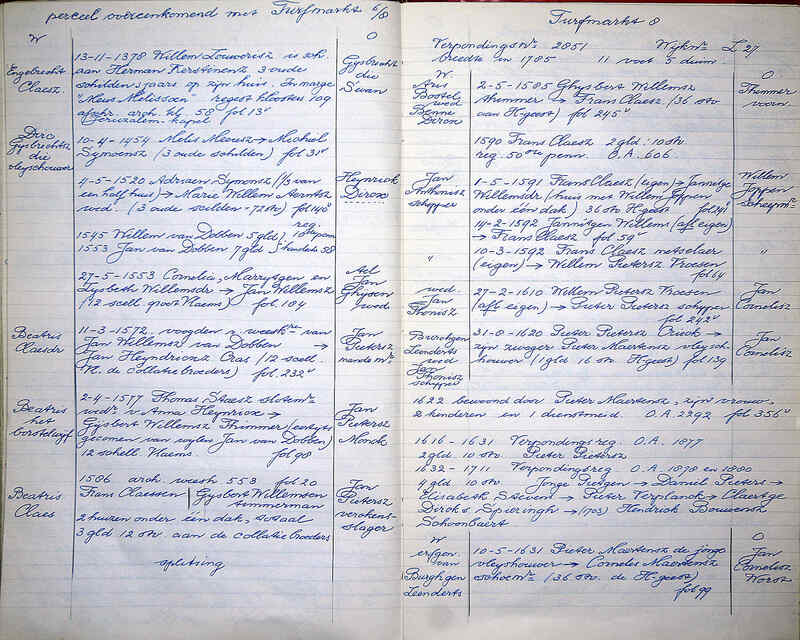 perceel overeenkomend met Turfmarkt 6/8
W
O
13-11-1378 Willem Louwerisz is sch.
aan Herman Kerstinenz 3 oude
schilden 's jaars op zijn huis. In marge
"Meus Melissoen" regest kloosters 109
afschr. arch. 58 fol 13v
(Jeruzalem-kapel)
Engebrecht
Claesz.
Gysbrecht
die
Swan
Dirc
Gysbrechtsz
die
vleyschouwer
10-4-1454 Melis Meeusz → Michiel
Symonsz (3 oude schilden) fol 31v
4-5-1520 Adriaen Symonsz (1/3 van
een half huis) → Marie Willem Aerntsz
wed. (3 oude scilden - 72 st) fol 140v
Heynrick
Dirox
1545 Willem van Dobben 5 gld
1553 Jan van Dobben 7 gld
reg.
10e penn
27-5-1553 Cornelia, Marrytgen en
Lysbeth Willemsdr → Jan Willemsz
(12 scell groot Vlaems) fol. 184
Ael
Jan
Ghysen
wed
Beatris
Claesdr
11-3-1572 voogden v weeskre van
Jan Willemsz van Dobben →
Jan Heyndricxz Cras (12 scell.
Vl. de collatiebroeders) fol. 232v
Jan
Pietersz
mandemr
Beatris
het
borstelwyf
2-4-1577 Thomas Staesz slotemr
wedr v Anna Heynricx →
Gijsbert Willemsz Thimmer (eertyts
gecomen van wylen Jan van Dobben)
12 schell Vlaems. fol 98
Jan
Pietersz
Monck
Beatris
Claes
1586 arch. weesk 553 fol 20
Frans Claessen | Gysbert Willemsen
timmerman
2 huizen onder één dak, totaal
3 gld 12 st. aan de collatiebroeders
Jan
Pietersz
verckens-
slager
splitsing
Turfmarkt 8
Verpondingsnr 2851 Wijknr L 27
breedte in 1785 11 voet 5 duim.
W.
O
Aris
Bostel
wed
Benne
Dircx
2-5-1585 Ghysbert Willemsz
thimmer → Frans Claesz (36 stv
aan H-geest) fol 245v
Thimmer
voorn.
1590 Frans Claesz 2 gld: 10 st.
reg. 50ste penn. O.A. 606.
Jan
Anthonisz
schipper
1-5-1591 Frans Claesz (eigen) → Jannitge
Willemsdr (huis met Willem Joppen
onder één dak) 36 st H-geest fol 241
14-2-1592 Jannitgen Willems (afl eigen)
→ Frans Claesz fol 59v
Willem
Joppen
scheepmr
"
10-3-1592 Frans Claesz metselaer
(eigen) → Willem Pietersz Vroesen
fol 64
"
wed.
Jan
Thonisz
27-2-1610 Willem Pietersz Vroesen
(afl eigen) → Pieter Pietersz schipper
fol 242v
Jan
Cornelisz
Burchgen
Leenderts
wed
Jan
Thonisz
schipper
31-8-1620 Pieter Pietersz →
zijn zwager Pieter Maertensz vleysch-
houwer (1 gld 16 st. H-geest) fol 139
Jan
Cornelisz
1622 bewoond door Pieter Maertensz, zijn vrouw,
2 kinderen en 1 dienstmeid. O.A. 2292 fol 356v
1616 - 1631 Verpondingsreg. O.A. 1877
2 gld. 10 st. Pieter Pietersz
1632 - 1711 Verpondingsreg. O.A. 1878 en 1880
4 gld 10 st. Jonge Piergen → Daniel Pieters →
Elisabeth Steven → Pieter Verplanck → Claertge
Dircks Spieringh → (1703) Hendrick Bouwensz
Schoonbaert
W
O
erfgen.
van
Burghgen
Leenderts
10-5-1631 Pieter Maertensz de jonge
vleyshouwer → Cornelis Maertensz
schoemr (36 st. de H-geest)
fol 99
Jan
Cornelisz
Worst